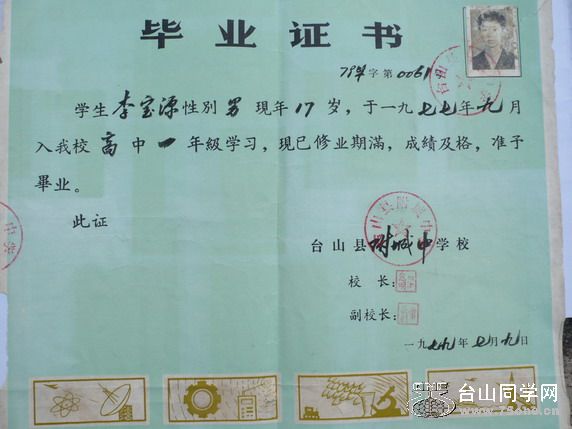 毕业证书
79年字第0061
学生李宝源性别男現年17岁，于一九七七年九月
入我校高中一年级学习，现已修业期滿，成績及格，准予
畢业。
此证
台山县附城中学校
校长：
副校长：
一九七九年七月九日
台山同学网
www.75one.cn